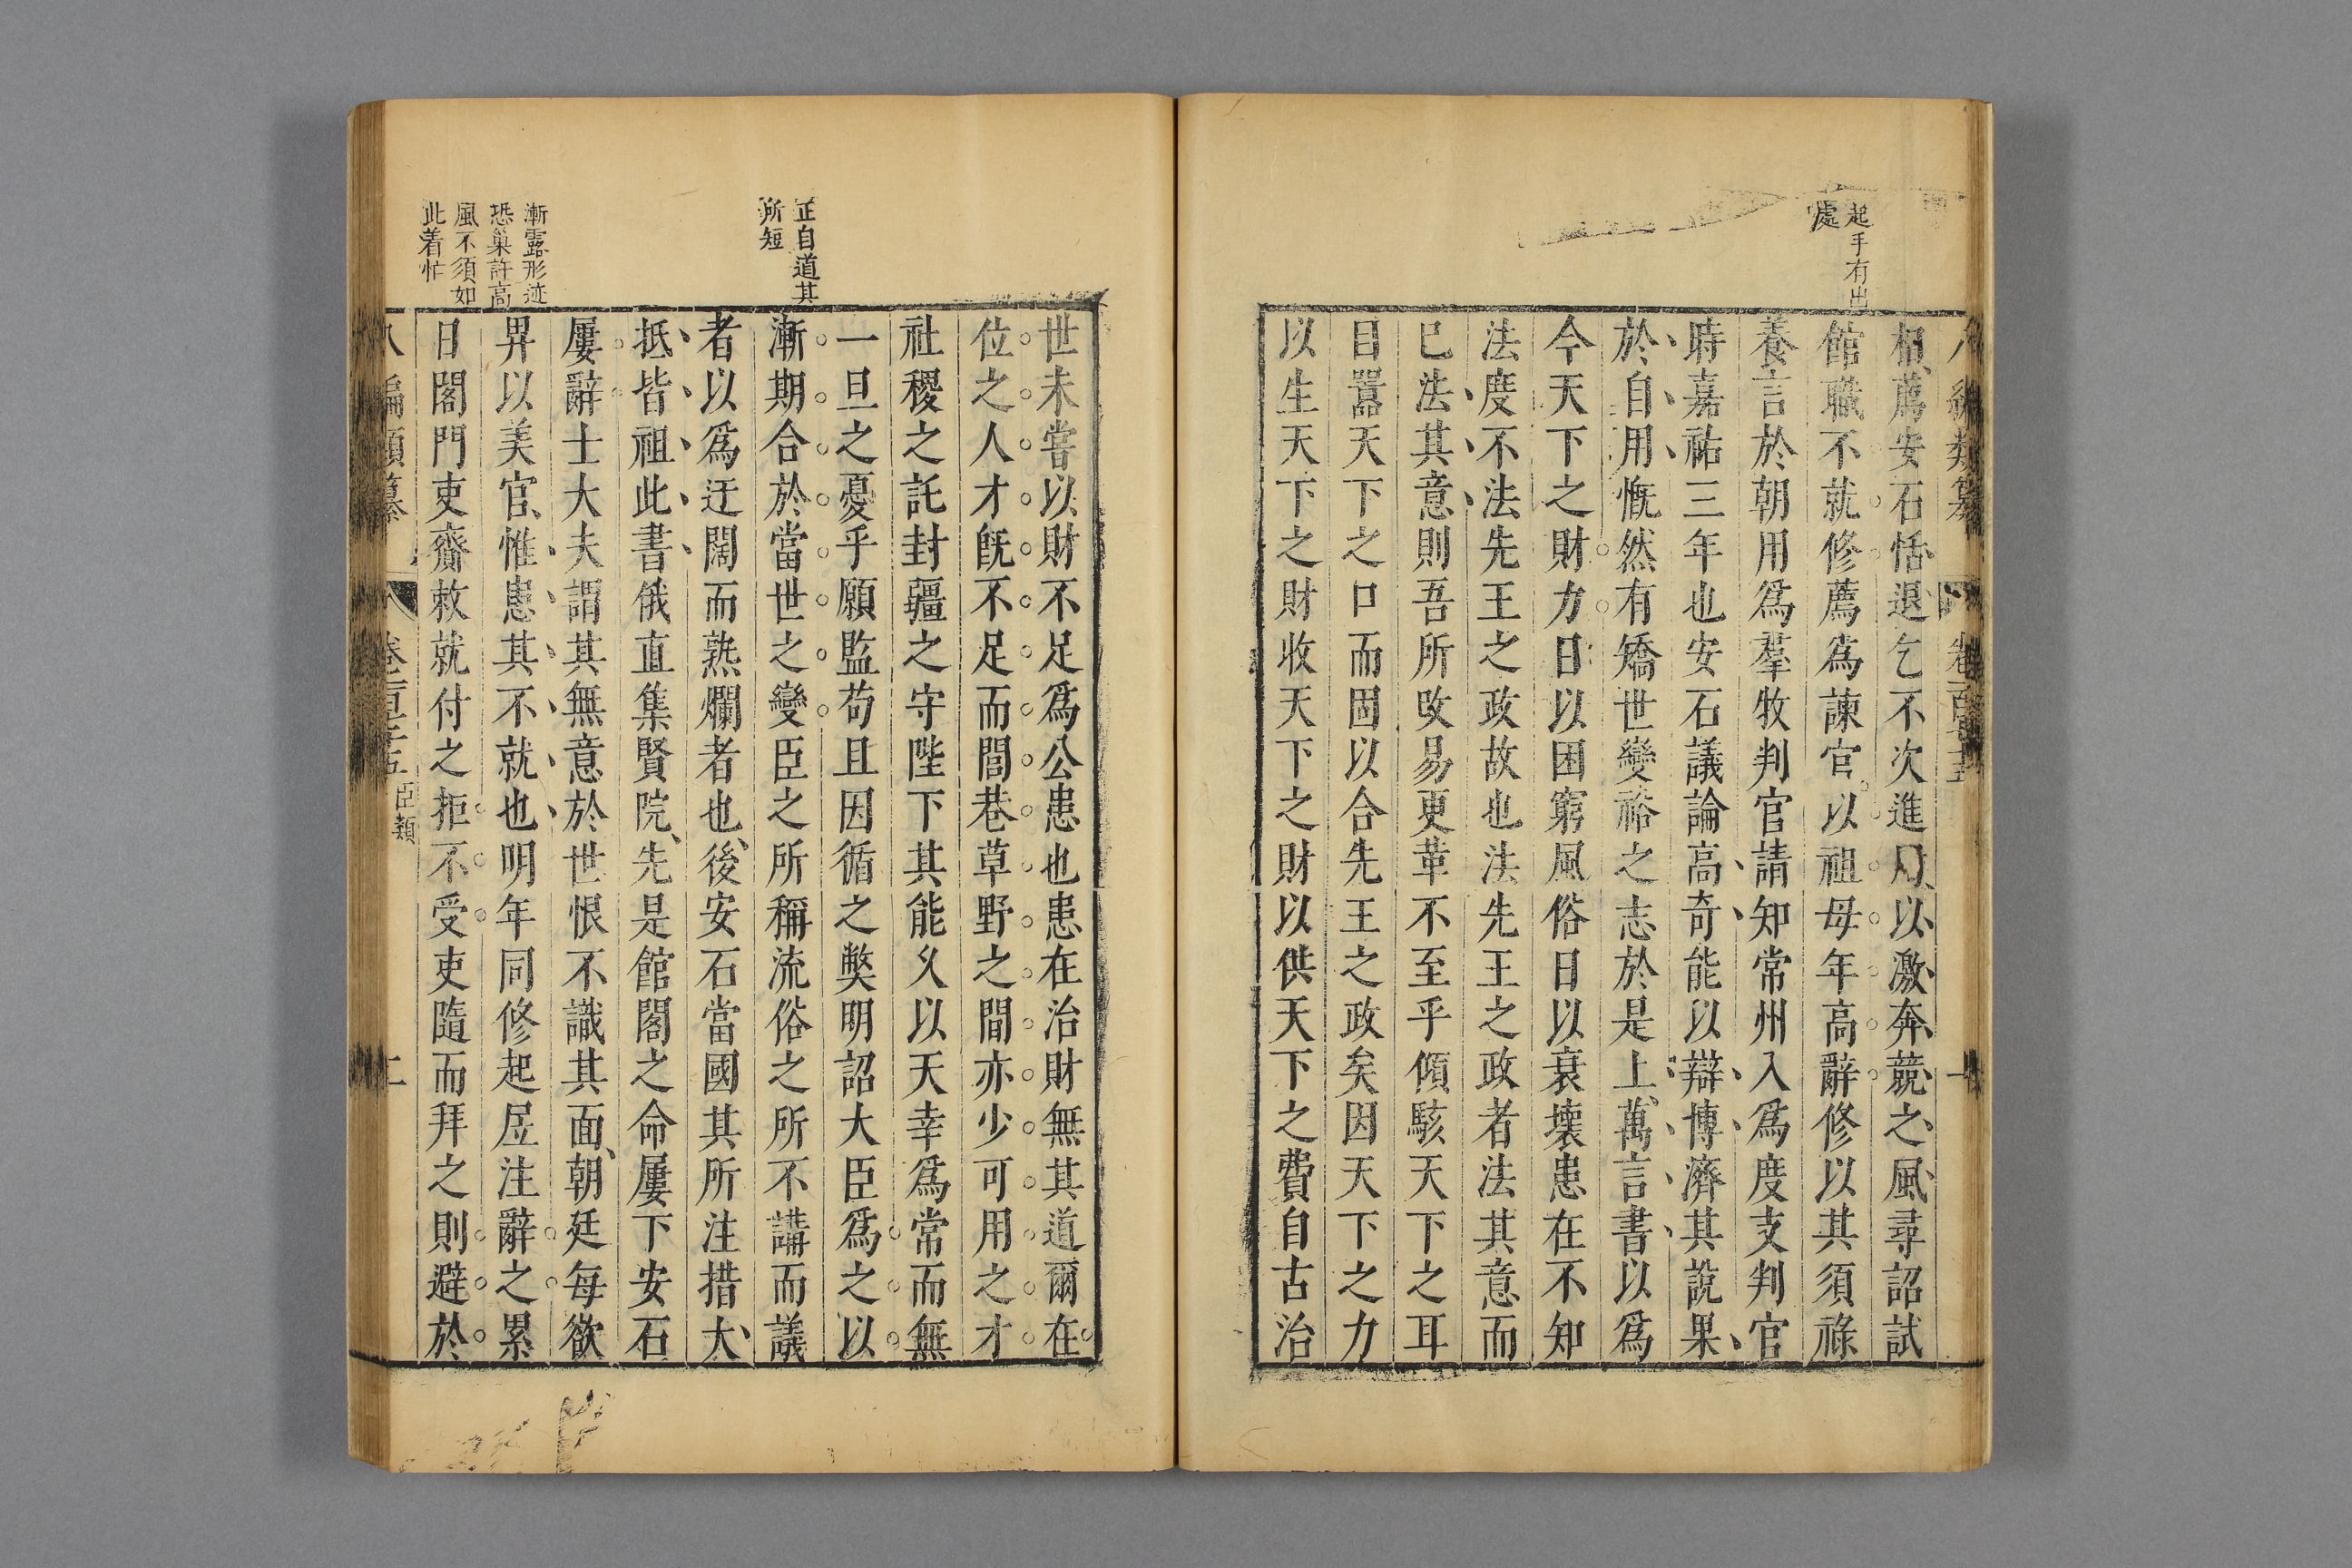 起手有出
處
相薦安石恬退乞不次進用以激奔競之風尋詔試
館職不就修薦爲諫官以祖母年高辭修以其須祿
養言於朝用爲羣牧判官請知常州入爲度支判官
時嘉祐三年也安石議論高奇能以辯博濟其說果
於自用慨然有矯世變裕之志於是上萬言書以爲
今天下之財力日以困窮風俗日以衰壞患在不知
法度不法先王之政故也法先王之政者法其意而
已法其意則吾所改易更革不至乎傾駭天下之耳
目囂天下之口而固以合先王之政矣因天下之力
以生天下之財收天下之財以供天下之費自古治
正自道其
所短
漸露形迹
恐巢許高
風不須如
此着忙
世未嘗以財不足爲公患也患在治財無其道爾在
位之人才旣不足而閭巷草野之間亦少可用之才
社稷之託封疆之守陛下其能久以天幸爲常而無
一旦之憂乎願監苟且因循之弊明詔大臣爲之以
漸期合於當世之變臣之所稱流俗之所不講而議
者以爲迂闊而熟爛者也後安石當國其所注措大
抵皆祖此書俄直集賢院先是館閣之命屢下安石
屢辭士大夫謂其無意於世恨不識其面朝廷每欲
畀以美官惟患其不就也明年同修起居注辭之累
日閤門吏齎敕就付之拒不受吏隨而拜之則避於
八編類纂 卷二百三十五 臣類